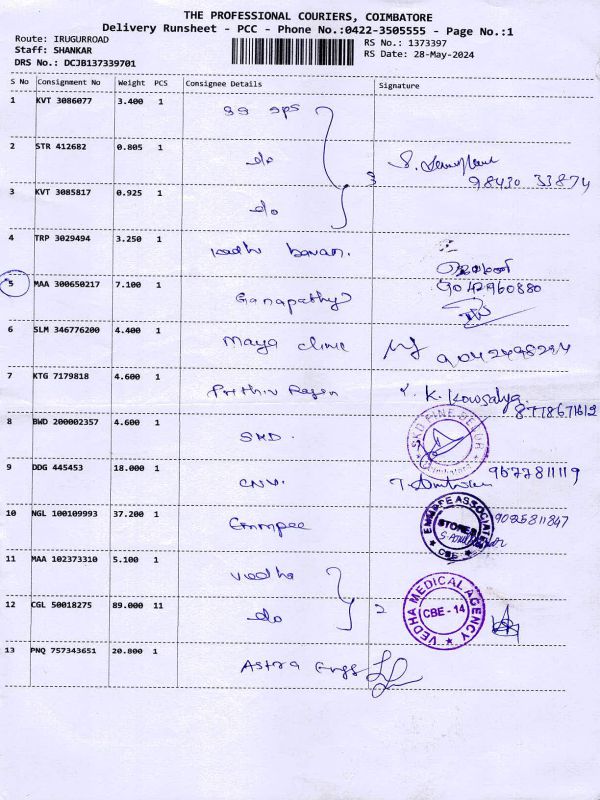 THE PROFESSIONAL COURIERS, COIMBATORE
Delivery Runsheet - PCC - Phone No.:0422-3505555 - Page No.:1
Route: IRUGURROAD
RS No.: 1373397
Staff: SHANKAR
RS Date: 28-May-2024
DRS No.: DCJB137339701
S No Consignment No Weight PCS Consignee Details Signature
1 KVT 3086077 3.400 1
2 STR 412682 0.805 1 do
98430 33874
3 KVT 3085817 0.925 1 do
3
4 TRP 3029494 3.250 1
5 MAA 300650217 7.100 1 Ganapathy 9042960880
6 SLM 346776200 4.400 1 Maya clinic 9042498294
7 KTG 7179818 4.600 1 Prithiv Rajen K. Kowsalya
8778671612
8 BWD 200002357 4.600 1 SKD.
9 DDG 445453 18.000 1 CNV. 9577811119
10 NGL 100109993 37.200 1 Emmpee STORES CBE
11 MAA 102373310 5.100 1 Vedha
12 CGL 50018275 89.000 11 do 2 VEDHA MEDICAL AGENCY CBE - 14
13 PNQ 757343651 20.800 1 Astra Engg